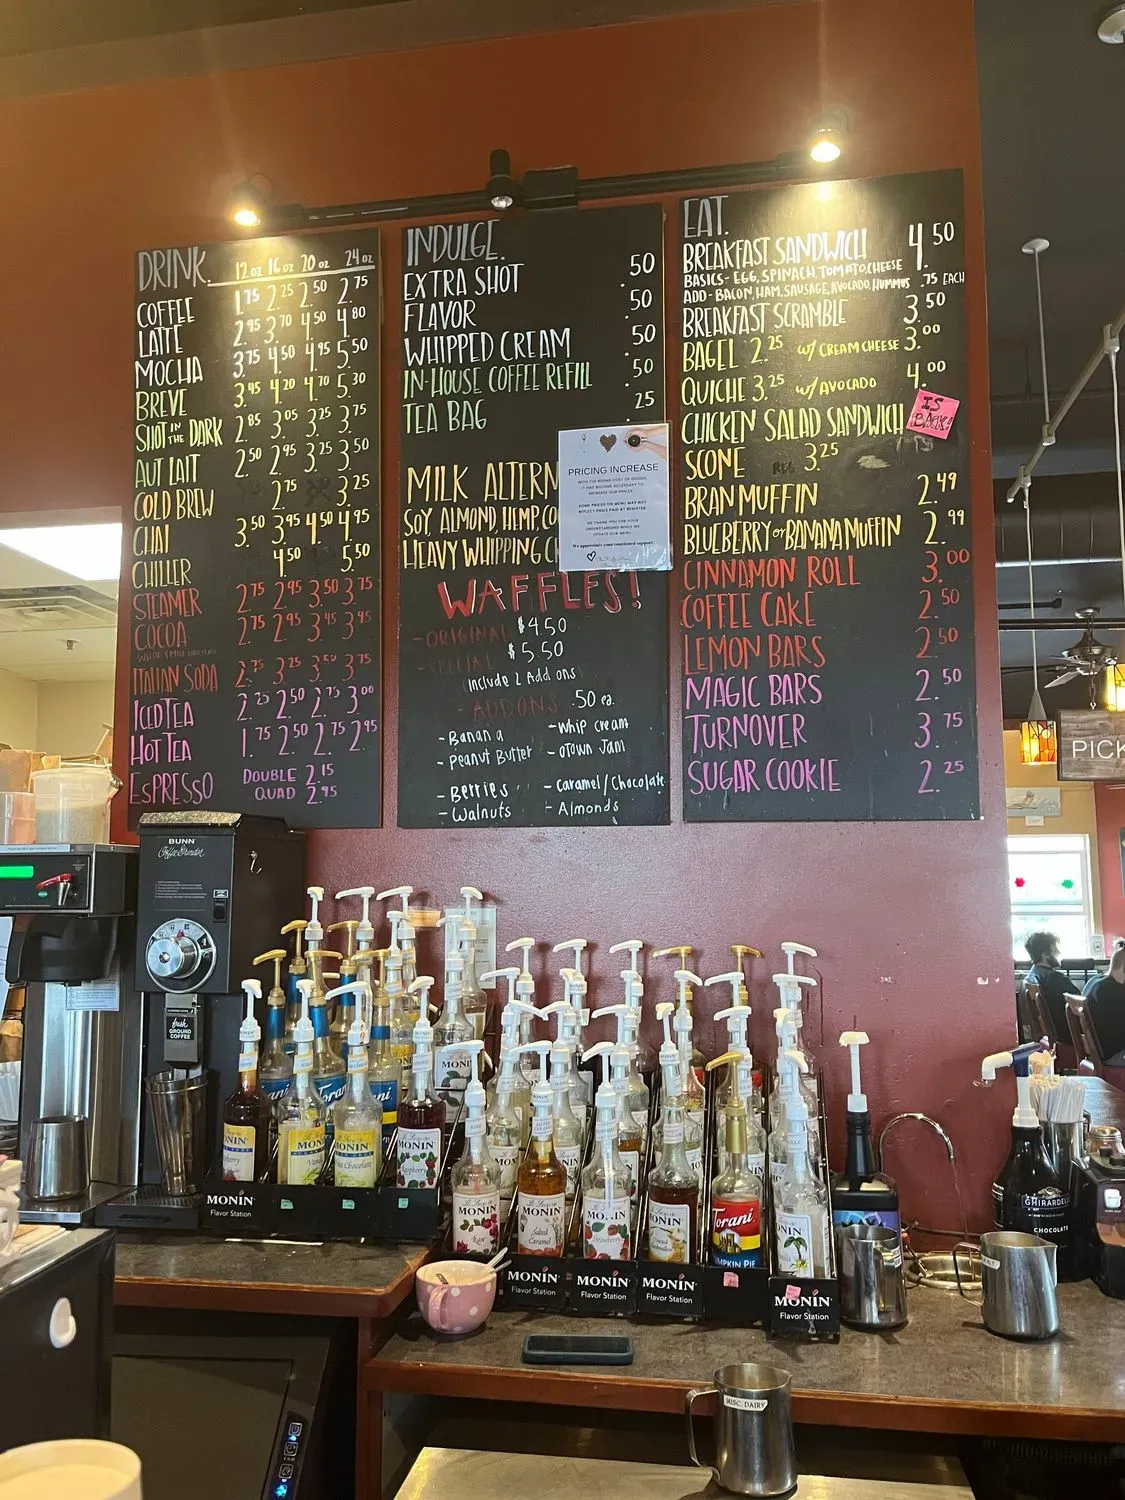 DRINK. 12 oz 16 oz 20 oz 24 oz
COFFEE 1.75 2.25 2.50 2.75
LATTE 2.95 3.70 4.50 4.80
MOCHA 3.75 4.50 4.95 5.50
BREVE 3.95 4.20 4.70 5.30
SHOT IN THE DARK 2.85 3.05 3.25 3.75
AUT LAIT 2.50 2.95 3.25 3.50
COLD BREW 2.75 3.25
CHAI 3.50 3.95 4.50 4.95
CHILLER 4.50 5.50
STEAMER 2.75 2.95 3.50 3.75
COCOA 2.75 2.95 3.45 3.95
ITALIAN SODA 2.75 3.25 3.50 3.75
ICED TEA 2.25 2.50 2.75 3.00
HOT TEA 1.75 2.50 2.75 2.95
ESPRESSO DOUBLE 2.15
QUAD 2.95
INDULGE.
EXTRA SHOT .50
FLAVOR .50
WHIPPED CREAM .50
IN-HOUSE COFFEE REFILL .50
TEA BAG .25
MILK ALTERN
SOY, ALMOND, HEMP, CO
HEAVY WHIPPING C
PRICING INCREASE
WITH THE RISING COST OF GOODS,
IT HAS BECOME NECESSARY TO
INCREASE OUR PRICES.
SOME PRICES ON MENU MAY NOT
REFLECT PRICE PAID AT REGISTER
WE THANK YOU FOR YOUR
UNDERSTANDING WHILE WE
UPDATE OUR MENU.
We appreciate your continued support.
WAFFLES!
- ORIGINAL $4.50
- SPECIAL $5.50
Include 2 Add ons
- ADD ONS .50 ea.
- Banana - Whip cream
- Peanut Butter - OTOWN Jam
- Berries - Caramel/Chocolate
- Walnuts - Almonds
EAT.
BREAKFAST SANDWICH 4.50
BASICS - EGG, SPINACH, TOMATO, CHEESE
ADD - BACON, HAM, SAUSAGE, AVOCADO, HUMMUS .75 EACH
BREAKFAST SCRAMBLE 3.50
BAGEL 2.25 w/ CREAM CHEESE 3.00
QUICHE 3.25 w/ AVOCADO 4.00
CHICKEN SALAD SANDWICH IS BACK!
SCONE REG 3.25
BRAN MUFFIN 2.49
BLUEBERRY or BANANA MUFFIN 2.99
CINNAMON ROLL 3.00
COFFEE CAKE 2.50
LEMON BARS 2.50
MAGIC BARS 2.50
TURNOVER 3.75
SUGAR COOKIE 2.25
PICK
BUNN
Coffee Grinder
fresh
GROUND
COFFEE
MONIN
MONIN
MONIN
Raspberry
Torani
MONIN
Flavor Station
MONIN
Rose
MONIN
Salted
Caramel
MONIN
Strawberry
MONIN
Torani
PUMPKIN PIE
MONIN
MONIN
Flavor Station
MONIN
Flavor Station
MONIN
Flavor Station
MONIN
Flavor Station
GHIRARDELLI
CHOCOLATE
MISC. DAIRY